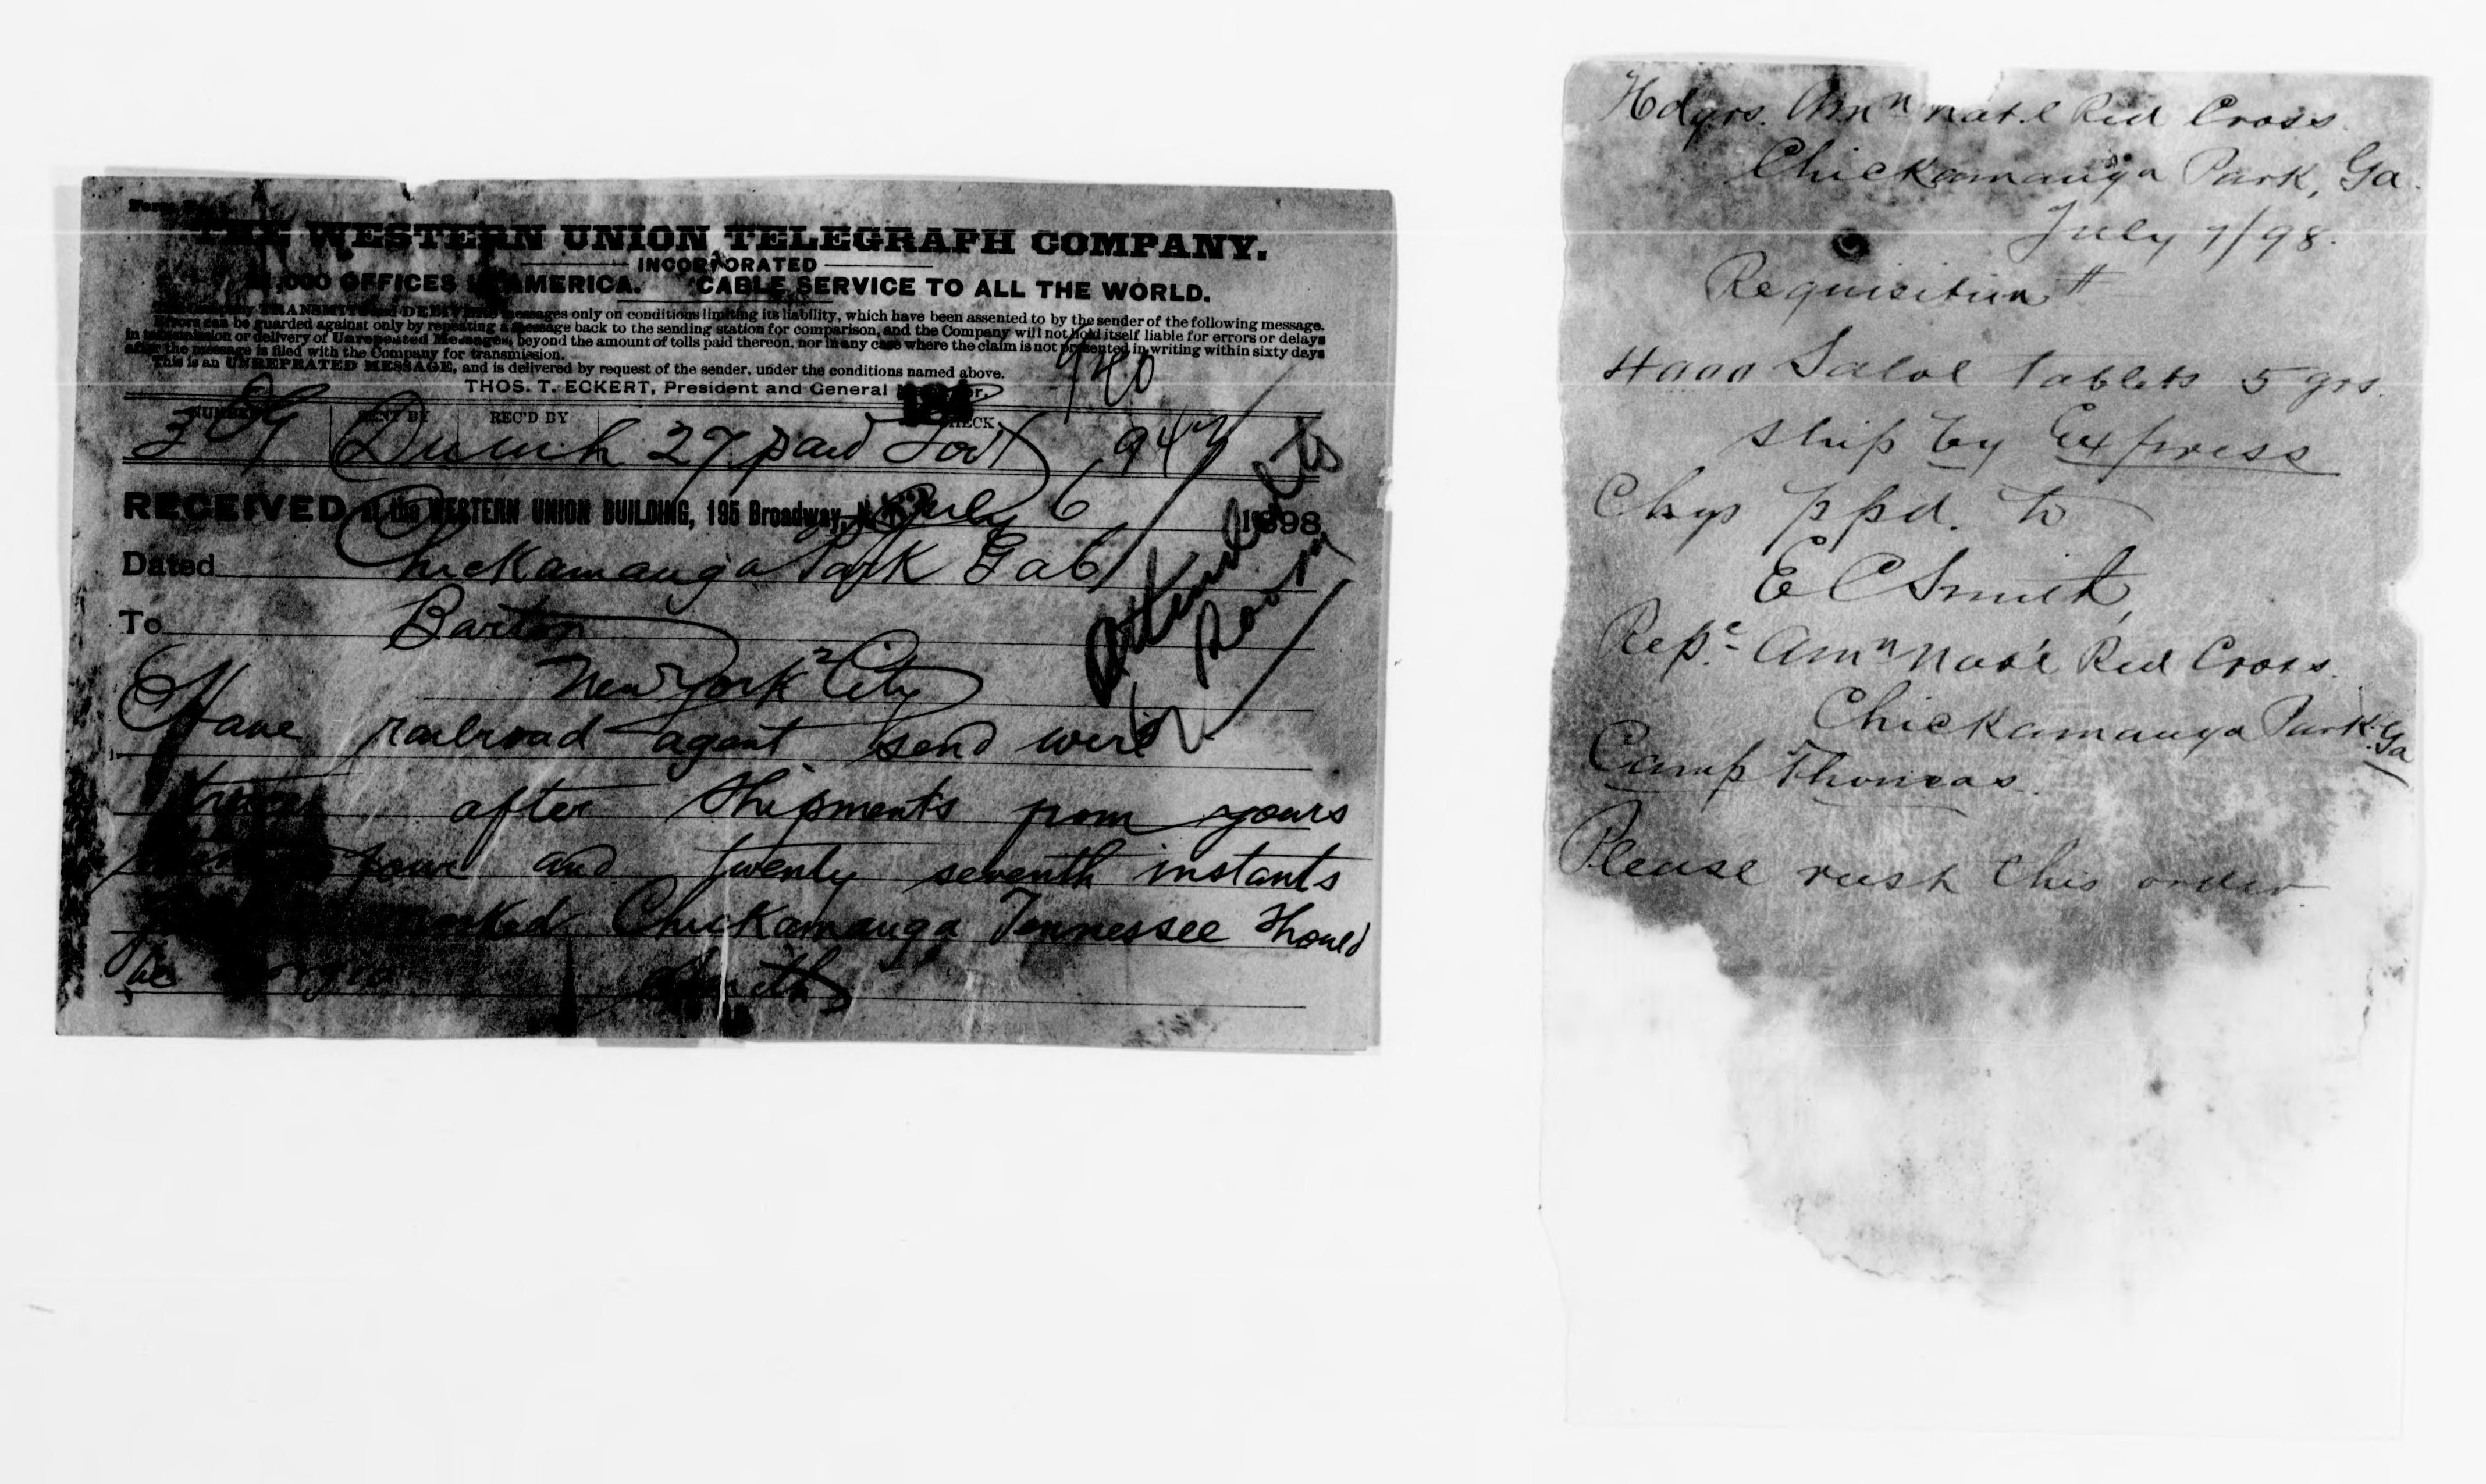 THE WESTERN UNION TELEGRAPH COMPANY.
INCORPORATED
,000 OFFICES IN AMERICA. CABLE SERVICE TO ALL THE WORLD.
TRANSMITS and DELIVERS messages only on conditions limiting its liability, which have been assented to by the sender of the following message.
Errors can be guarded against only by repeating a message back to the sending station for comparison, and the Company will not hold itself liable for errors or delays
in transmission or delivery of Unrepeated Messages, beyond the amount of tolls paid thereon, nor in any case where the claim is not presented in writing within sixty days
after the message is filed with the Company for transmission.
This is an UNREPEATED MESSAGE, and is delivered by request of the sender, under the conditions named above.
THOS. T. ECKERT, President and General Manager.
940
NUMBER SENT BY REC'D BY CHECK
27 paid
RECEIVED at the WESTERN UNION BUILDING, 195 Broadway, N.Y. July 6 1898
Dated Chickamauga Park Ga 6
To Barton
New York City
Have railroad agent send wire
tracer after shipments from yours
four and twenty seventh instants
marked Chickamauga Tennessee should
be Georgia Smith
Hdqrs. Amn Nat'l Red Cross.
Chickamauga Park, Ga.
July 7/98.
Requisition #
4000 Salol tablets 5 grs.
Ship by Express
Chgs ppd. to
E C Smith,
Repe Amn Nat'l Red Cross.
Chickamauga Park Ga
Camp Thomas.
Please rush this order